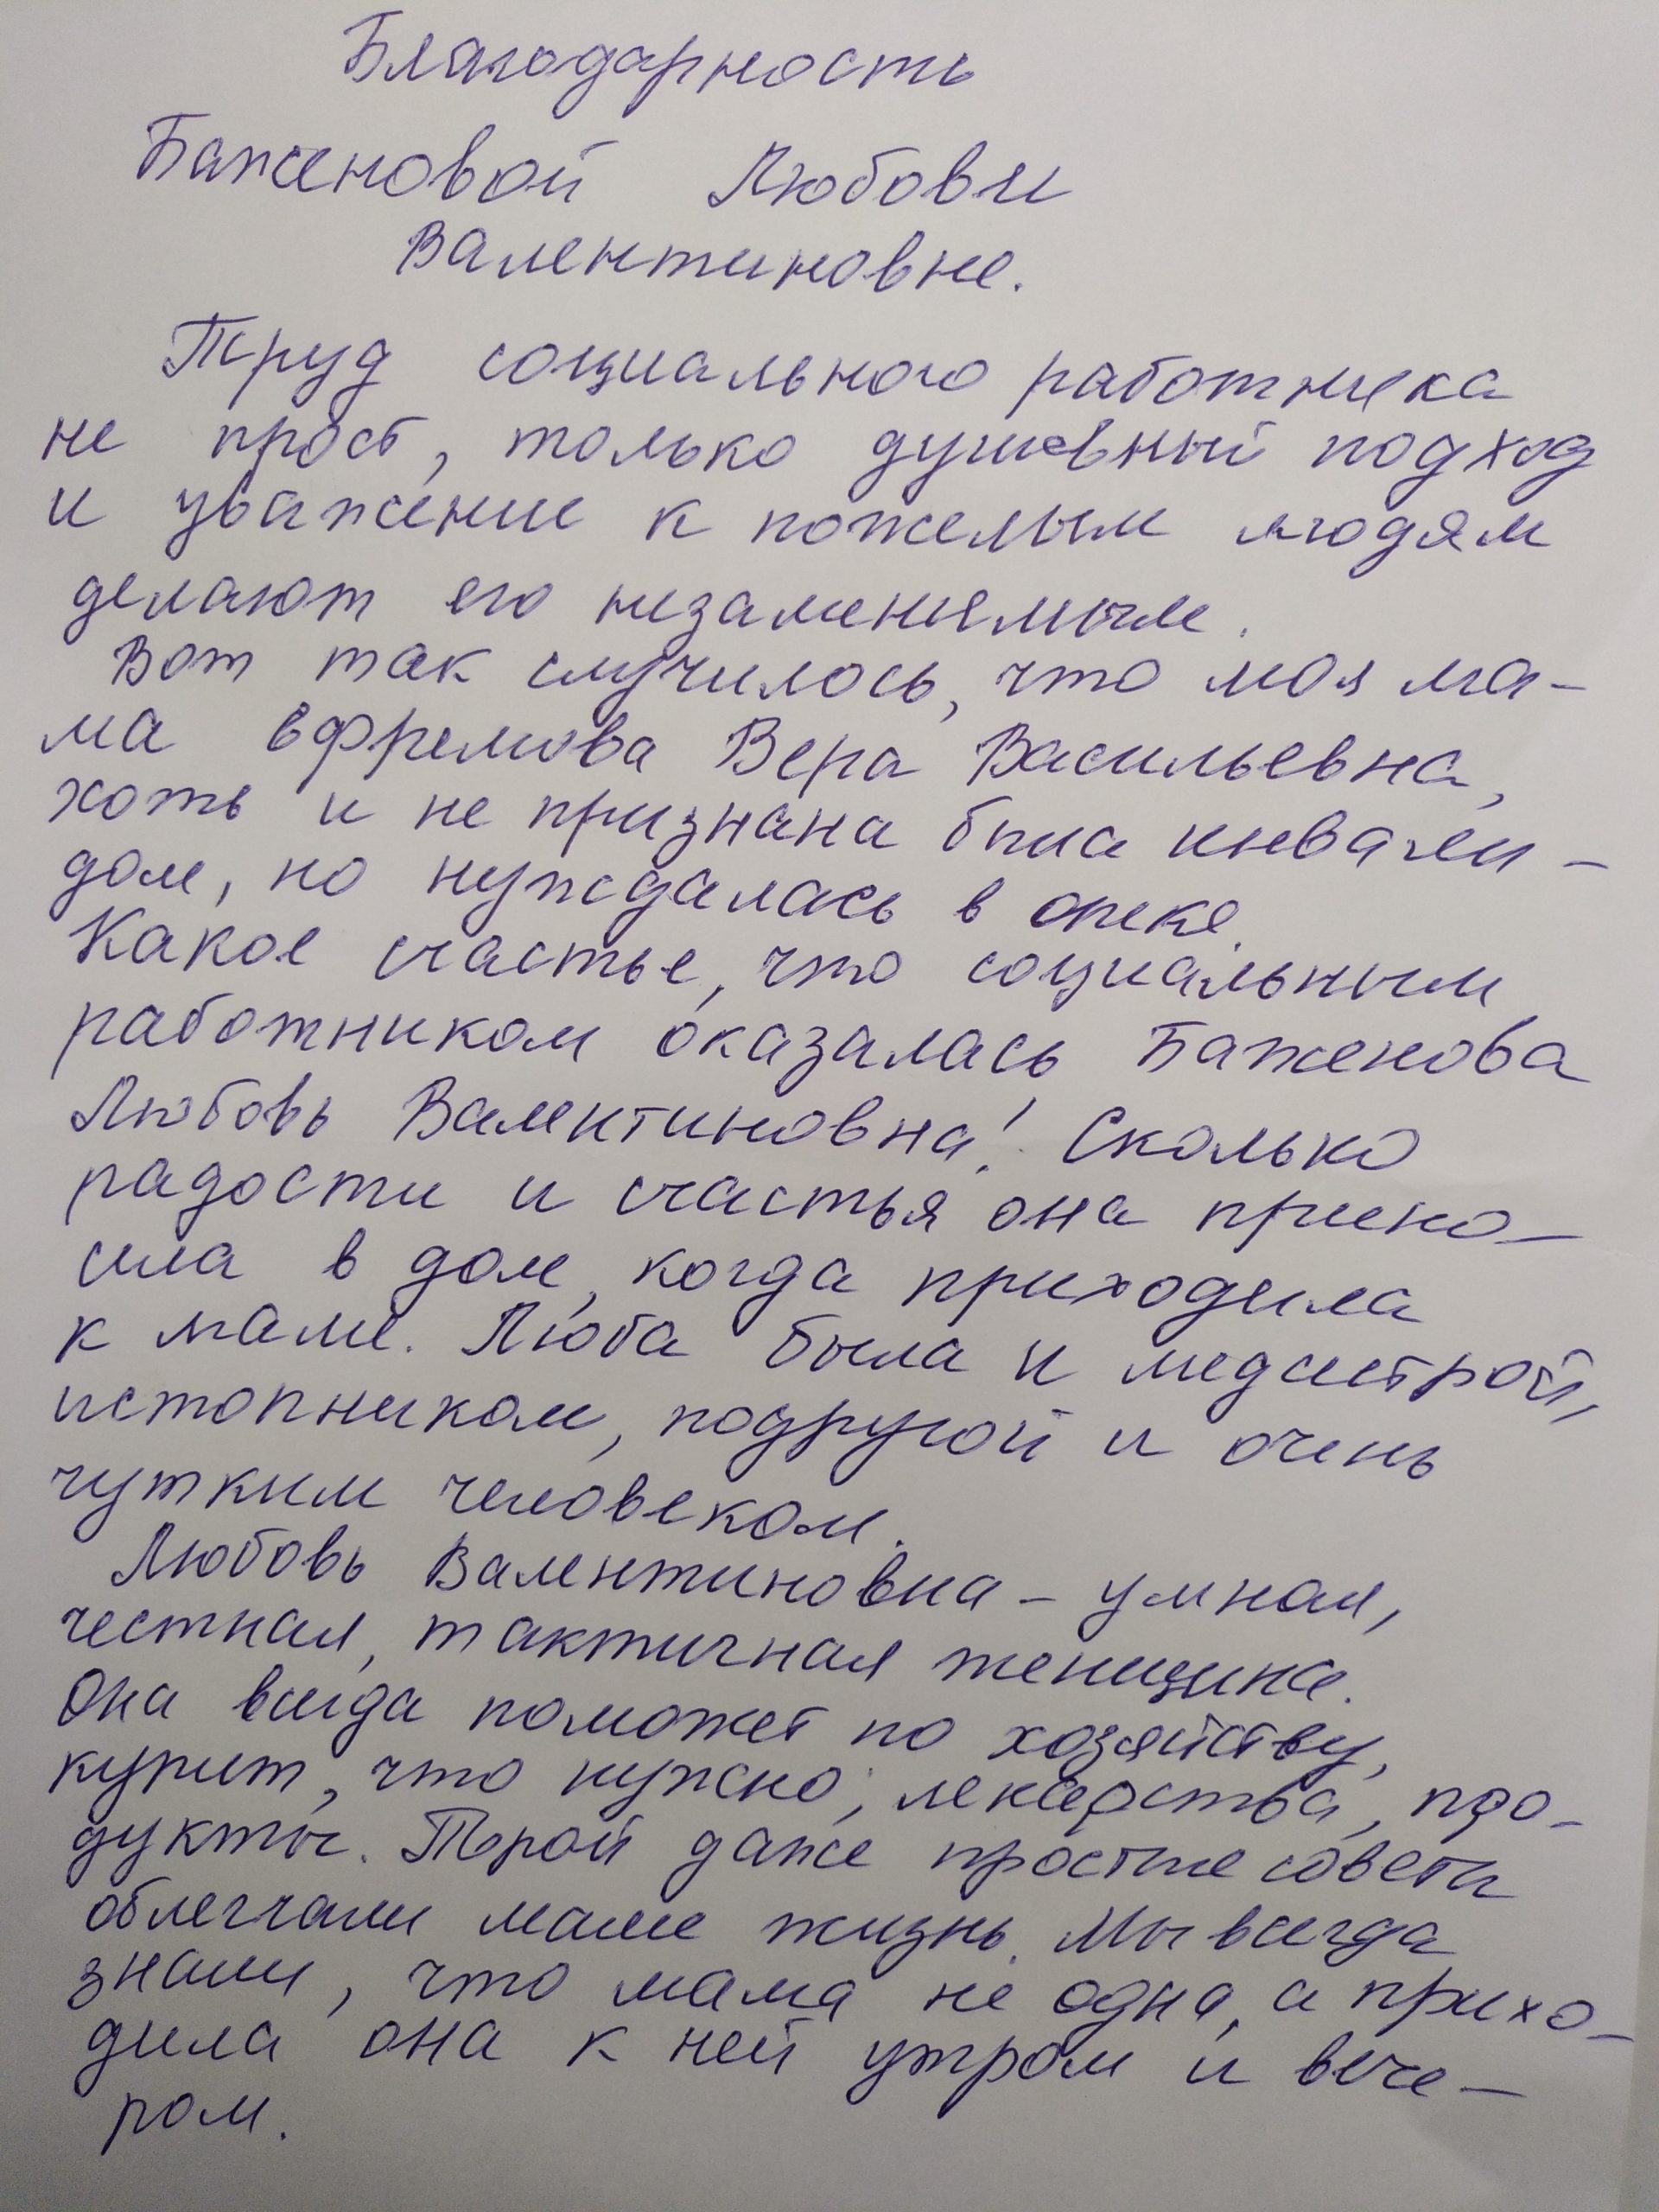 Благодарность
Баженовой Любови
Валентиновне.
Труд социального работника
не прост, только душевный подход
и уважение к пожелым людям
делают его незаменимым.
Вот так случилось, что моя ма-
ма Ефремова Вера Васильевна,
хоть и не признана была инвали-
дом, но нуждалась в опеке.
Какое счастье, что социальным
работником оказалась Баженова
Любовь Валентиновна! Сколько
радости и счастья она прино-
сила в дом, когда приходила
к маме. Люба была и медсестрой,
истопником, подругой и очень
чутким человеком.
Любовь Валентиновна - умная,
честная, тактичная женщина.
Она всегда поможет по хозяйству,
купит, что нужно; лекарства, про-
дукты. Порой даже простые советы
облегчали маме жизнь. Мы всегда
знали, что мама не одна, а прихо-
дила она к ней утром и вече-
ром.